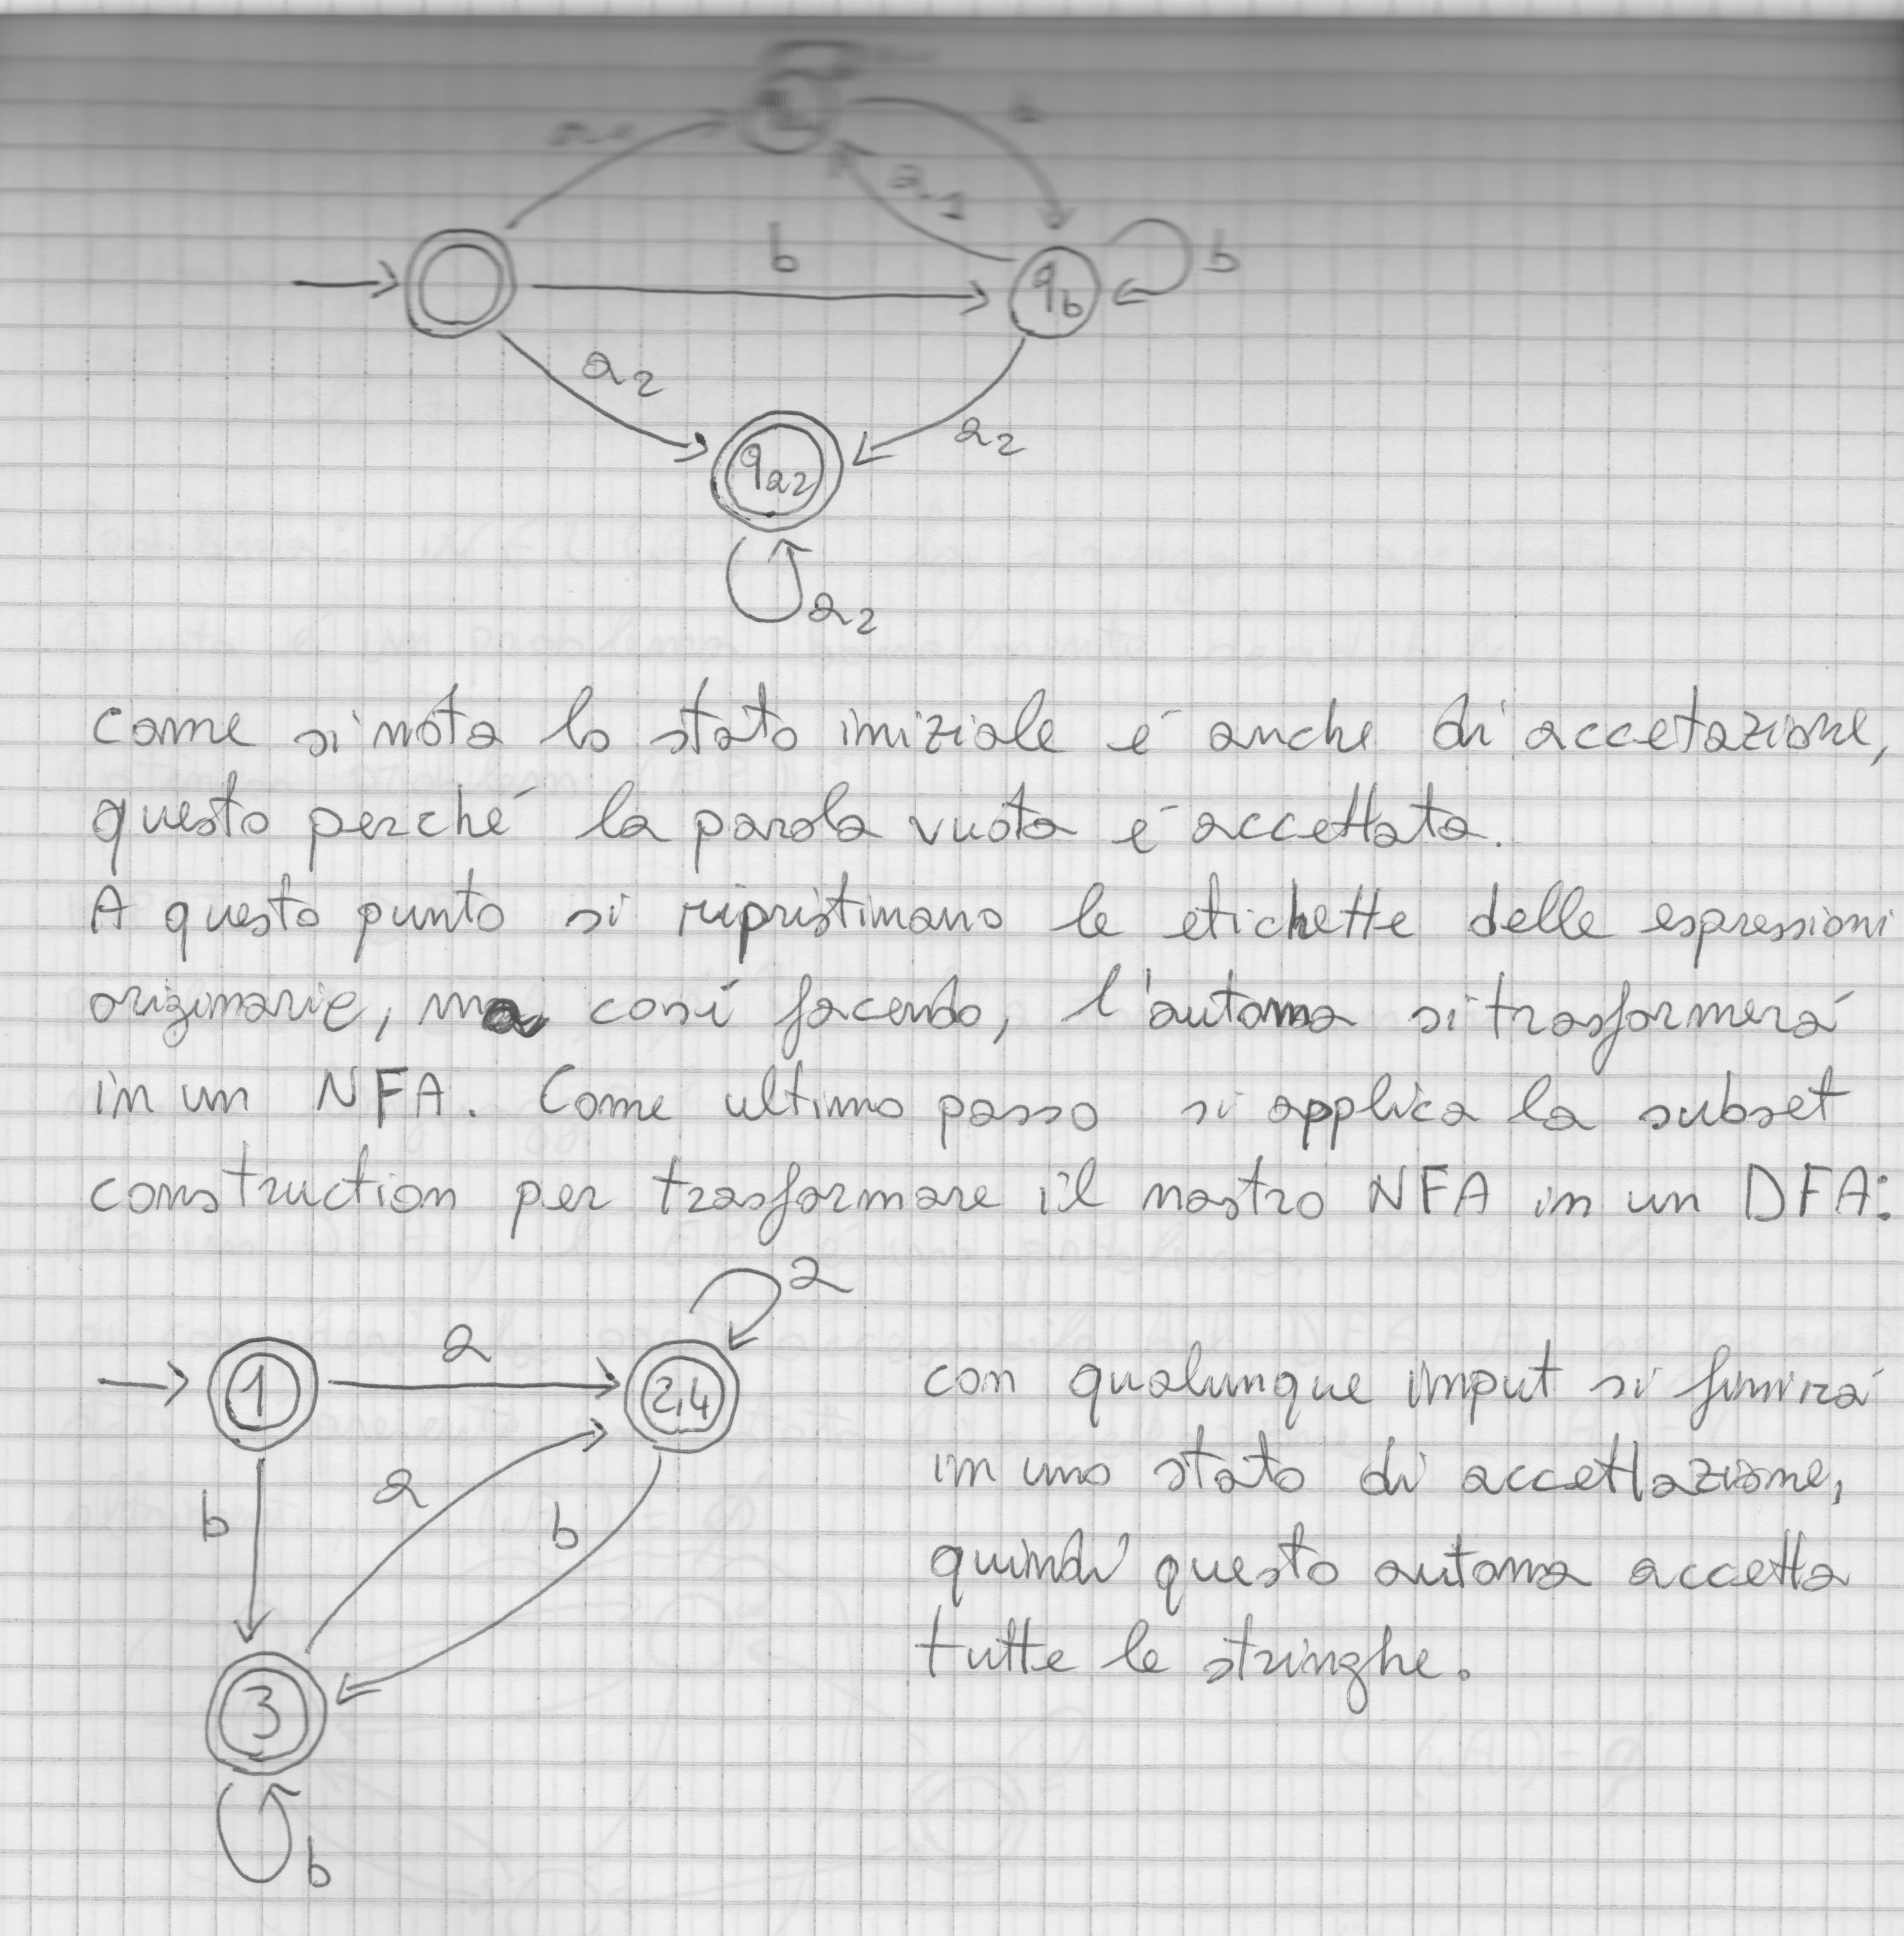 b
b
q_b
a_2
a_2
q_a2
a_2
come si nota lo stato iniziale é anche di accetazione,
questo perché la parola vuota é accettata.
A questo punto si ripristinano le etichette delle espressioni
originarie, ma cosí facendo, l'automa si trasformerá
in un NFA. Come ultimo passo si applica la subset
construction per trasformare il nostro NFA in un DFA:
a
1
a
2,4
b
a
b
3
b
con qualunque input si finirá
in uno stato di accettazione,
quindi questo automa accetta
tutte le stringhe.